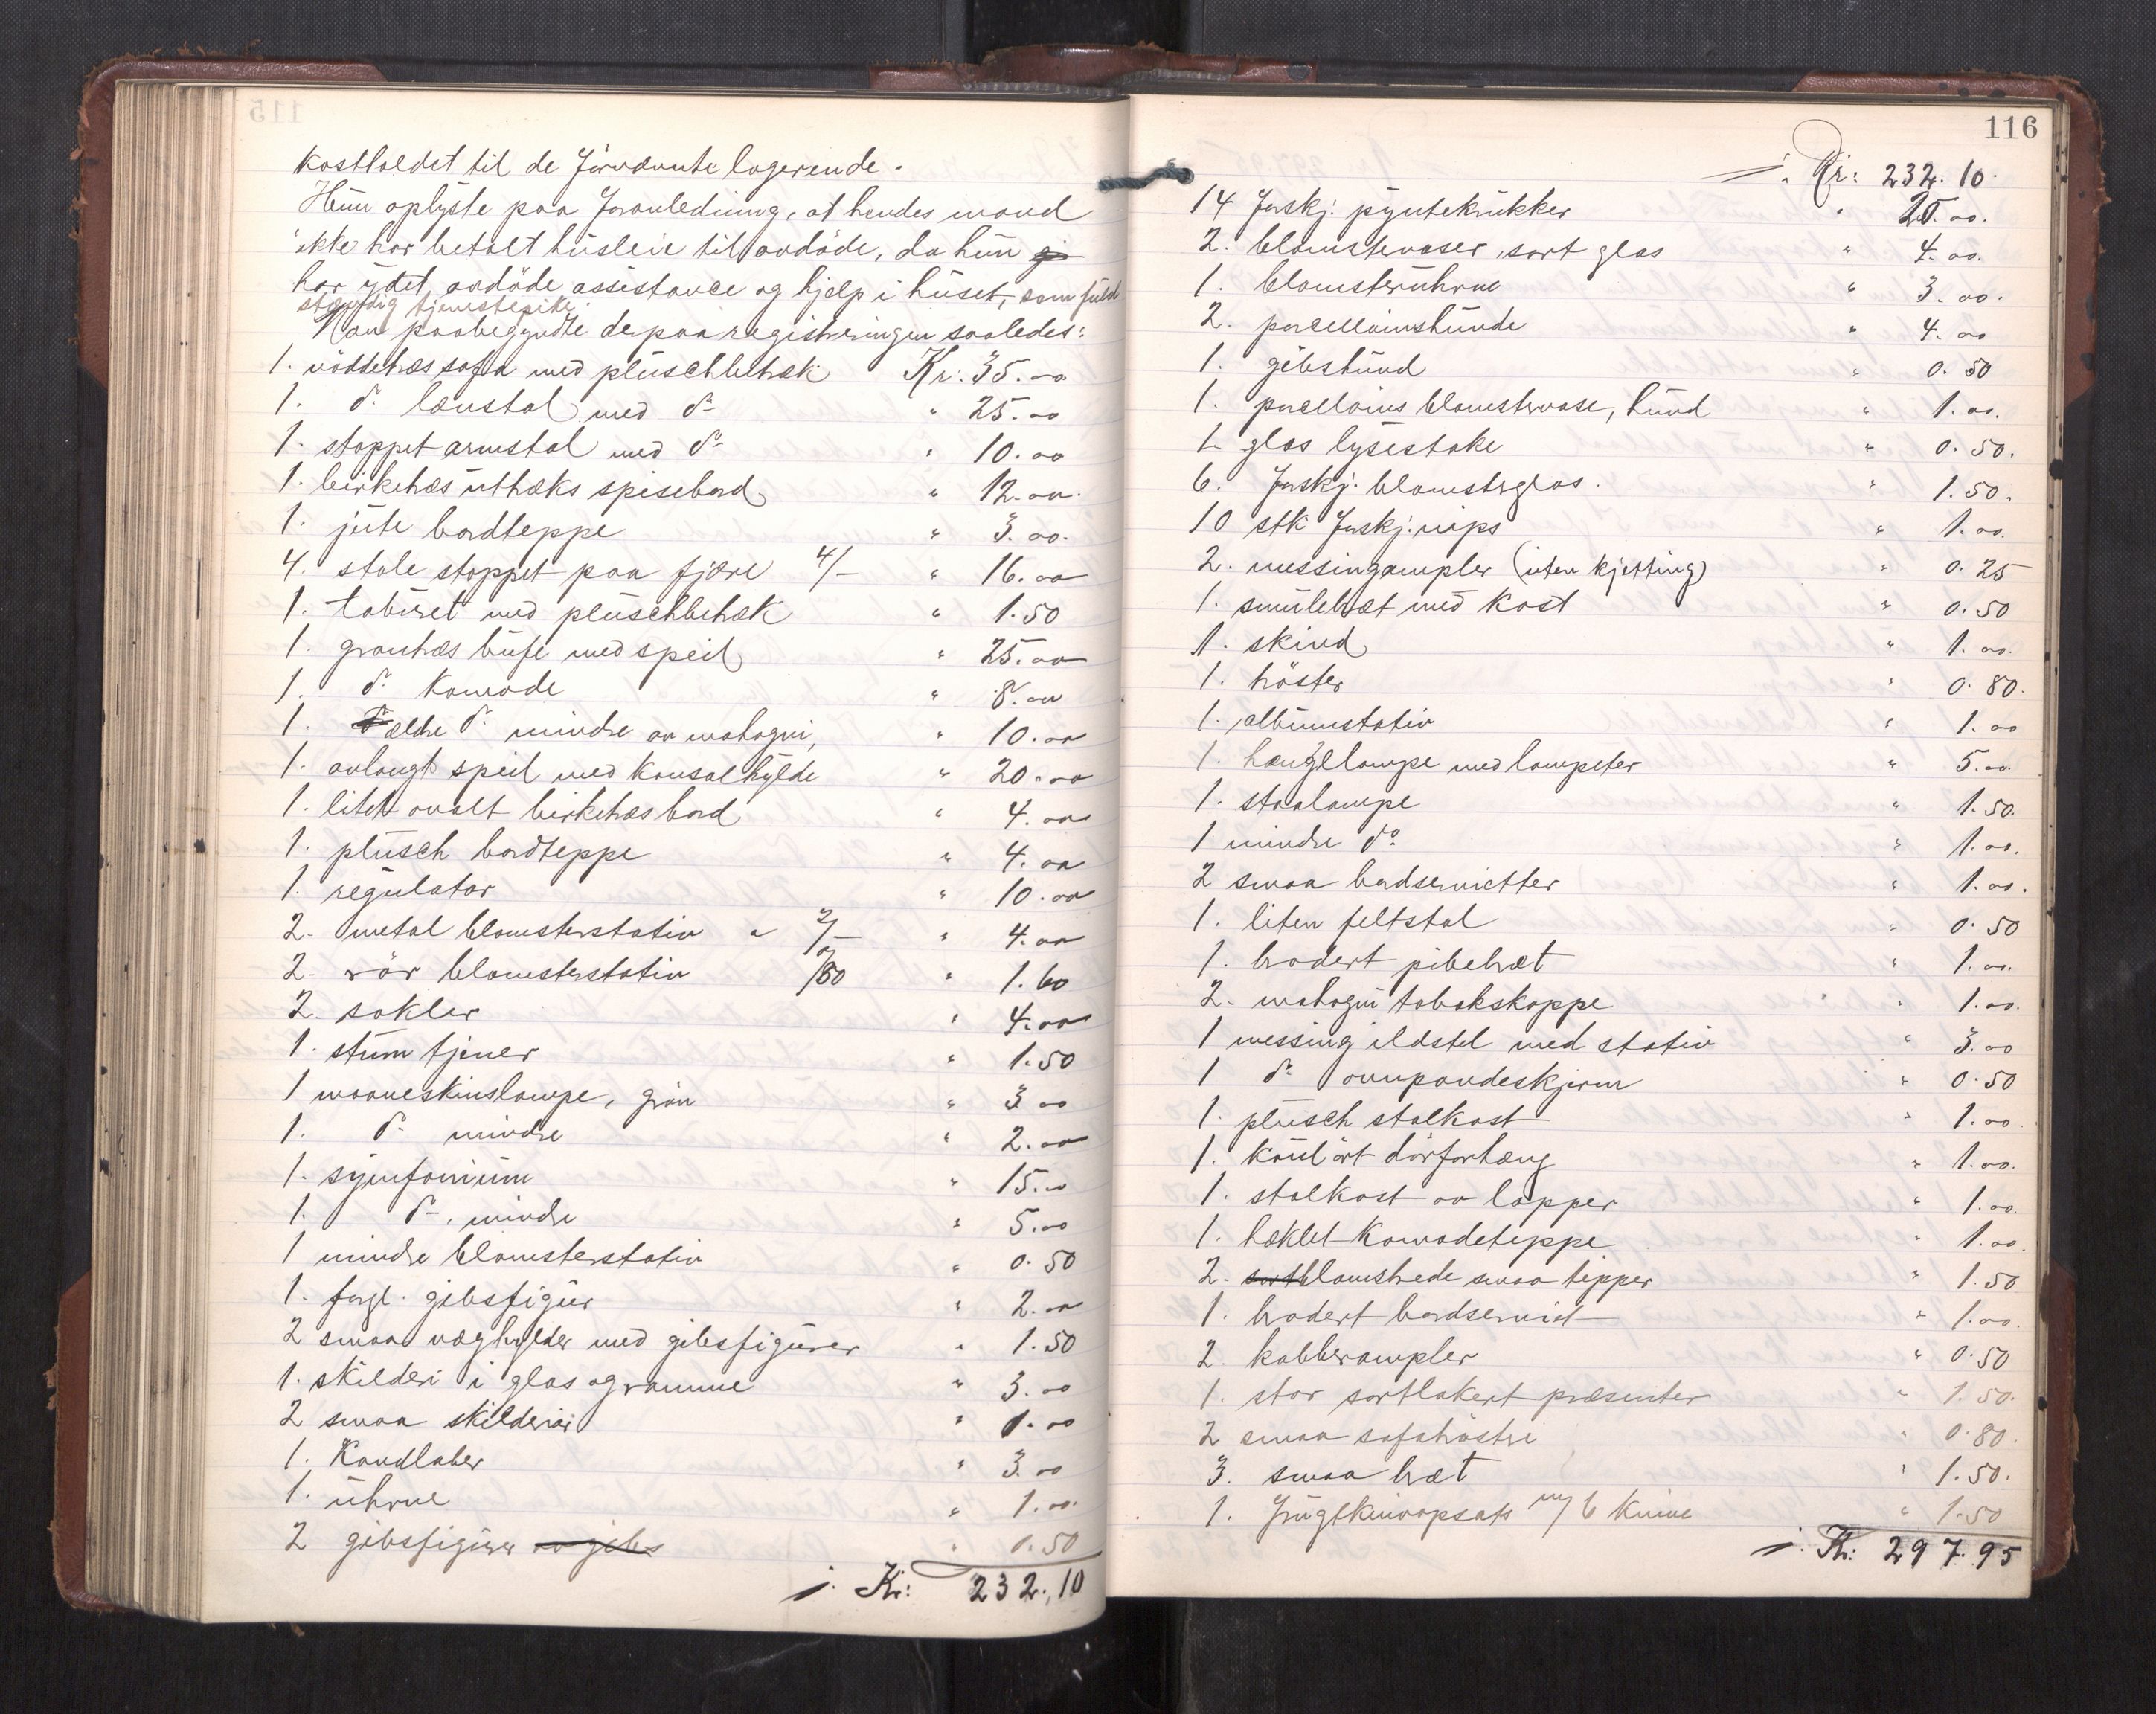 kostholdet til de förnævnte logerende.
Hun oplyste paa foranledning, at hendes mand
ikke har betalt husleie til avdöde, da hun
har ydet avdöde assistance og hjelp i huset, som fuld
stændig tjenestepike.
Man paabegyndte derpaa registreringen saaledes:
1. nöddetræs sofa med pluschbetræk Kr: 35.00
1. do lænstol med do " 25.00
1. stoppet armstol med do " 10.00
1. birketræs uttræks spisebord " 12.00
1. jute bordteppe " 3.00
4. stole stoppet paa fjære 4/- " 16.00
1. taburet med pluschbetræk " 1.50
1. grantræs bufe med speil " 25.00
1. do komode " 8.00
1. ældre do mindre av mahogni, " 10.00
1. avlangt speil med konsolhylde " 20.00
1. litet ovalt birketræs bord " 4.00
1. plusch bordteppe " 4.00
1. regulator " 10.00
2. metal blomsterstativ a 2/- " 4.00
2. rör blomsterstativ /80 " 1.60
2. sokler " 4.00
1. stum tjener " 1.50
1 maaneskinslampe, grön " 3.00
1. do mindre " 2.00
1. symfonium " 15.00
1. do, mindre " 5.00
1 mindre blomsterstativ " 0.50
1. forgl. gibsfigur " 2.00
2 smaa væghylder med gibsfigurer " 1.50
1. skilderi i glas og ramme " 3.00
2 smaa skilderier " 1.00
1. Kandlaber " 3.00
1. uhrne " 1.00
2 gibsfigurer av gibs " 0.50
i. Kr: 232.10
116
i. Kr: 232.10.
14 forskj. pyntekrukker " 20.00.
2. blomstervaser, sort glas " 4.00.
1. blomsteruhrne " 3.00.
2. porcellainshunde " 4.00
1. gibshund " 0.50
1. porcellains blomstervase, hund " 1.00.
1 glas lysestake " 0.50.
6. forskj. blomsterglas. " 1.50.
10 stk forskj. nips " 1.00.
2. messingampler (uten kjetting) " 0.25
1. smulebræt med kost " 0.50
1. skind " 1.00.
1. tröster " 0.80.
1. albumstativ " 1.00
1. hengelampe med lampeter " 5.00.
1. staalampe " 1.50.
1 mindre do " 1.00.
2 smaa bordservietter " 1.00.
1. liten feltstol " 0.50
1. brodert pibebræt " 1.00.
2. mahogni tobakskoppe " 1.00.
1 messing ildstel med stativ " 3.00
1 do ovnpandeskjerm " 0.50
1. plusch stolkast " 1.00.
1. kulört dörforhæng " 1.00.
1. stolkast av lapper " 1.00.
1. hæklet komodeteppe " 1.00.
2. sort blomstrede smaa tepper " 1.50
1. brodert bordserviet " 1.00.
2. kobberampler " 0.50
1. stor sortlakert præsenter " 1.50.
2 smaa sofatröstre " 0.80.
3. smaa bræt " 1.50.
1. frugtknivopsats m/ 6 knive " 1.50
i. Kr: 297.95